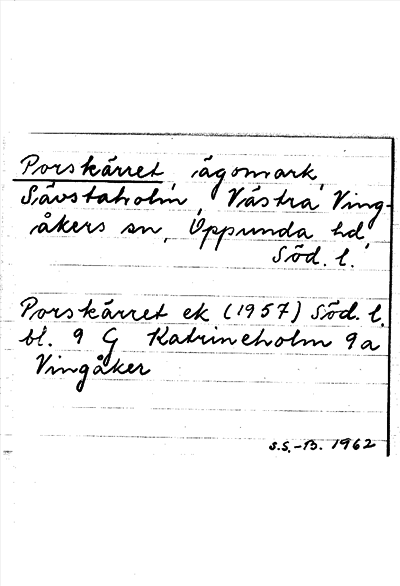 Porskärret, ägomark,
Sävstaholm, Västra Ving-
åkers sn, Oppunda hd,
Söd. l.
Porskärret ek (1957) Söd. l.
bl. 9 G Katrineholm 9a
Vingåker
S.S.-B. 1962